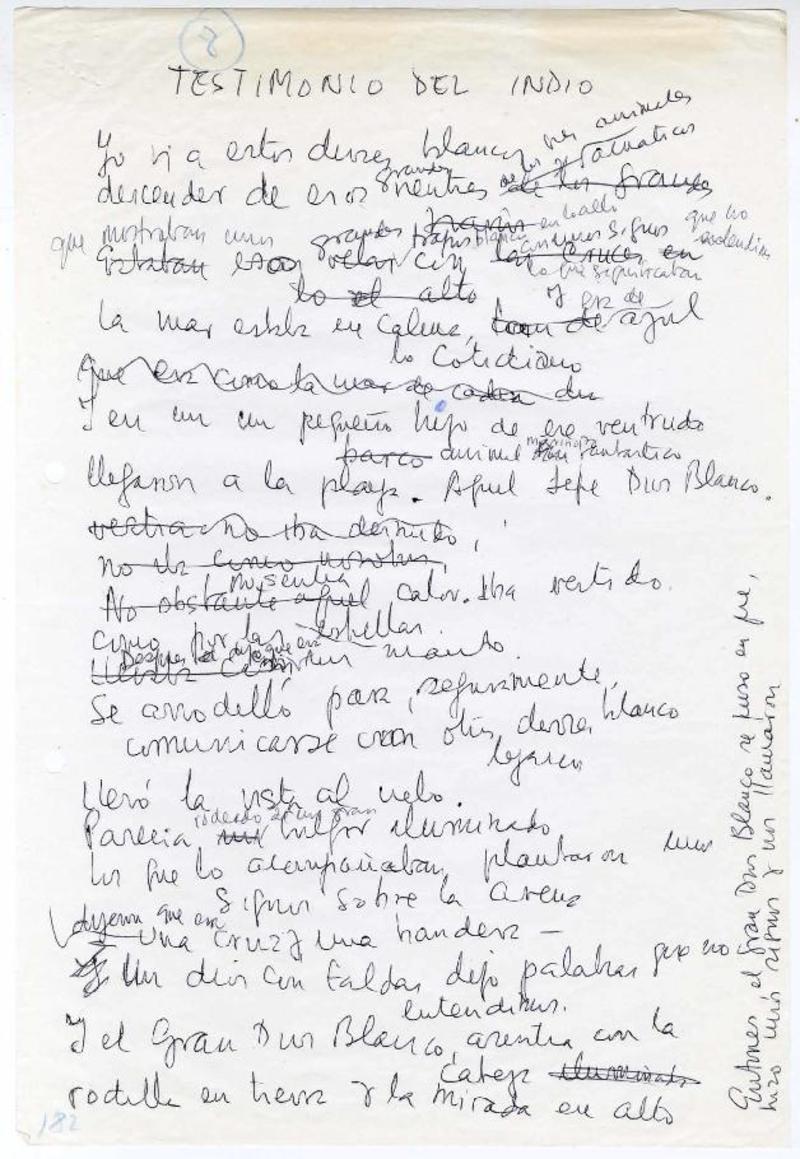 8
TESTIMONIO DEL INDIO
Yo vi a estos dioses blancos
descender de esos grandes vientres de los tres animales acuáticos
de los grandes
que mostraban unos grandes trapos blancos en lo alto con unos signos que no entendimos
Estaban esas velas con las cruces en
lo que significaban
lo el alto
La mar estaba en calma, y era de azul
lo cotidiano
que era como la mar de cada día
Y en un un pequeño hijo de ese ventrudo
barco animal marino fantástico
llegaron a la playa. Aquel Jefe Dios Blanco.
vestía no iba desnudo,
no iba como nosotros,
No obstante aquel no sentía calor. Iba vestido
como por las estrellas.
Después dijo que era un manto.
Se arrodilló para, seguramente,
comunicarse con otros dioses blancos
lejanos
Llevó la vista al cielo.
Parecía rodeado de un gran fulgor iluminado
Los que lo acompañaban, plantaron unos
signos sobre la arena
dijeron que era
una cruz y una bandera –
Y Un dios con faldas dijo palabras que no
entendimos.
Y el Gran Dios Blanco, asentía con la
cabeza iluminada
rodilla en tierra y la mirada en alto
Entonces el gran Dios Blanco se puso en pie,
hizo unos signos y nos llamaron
182